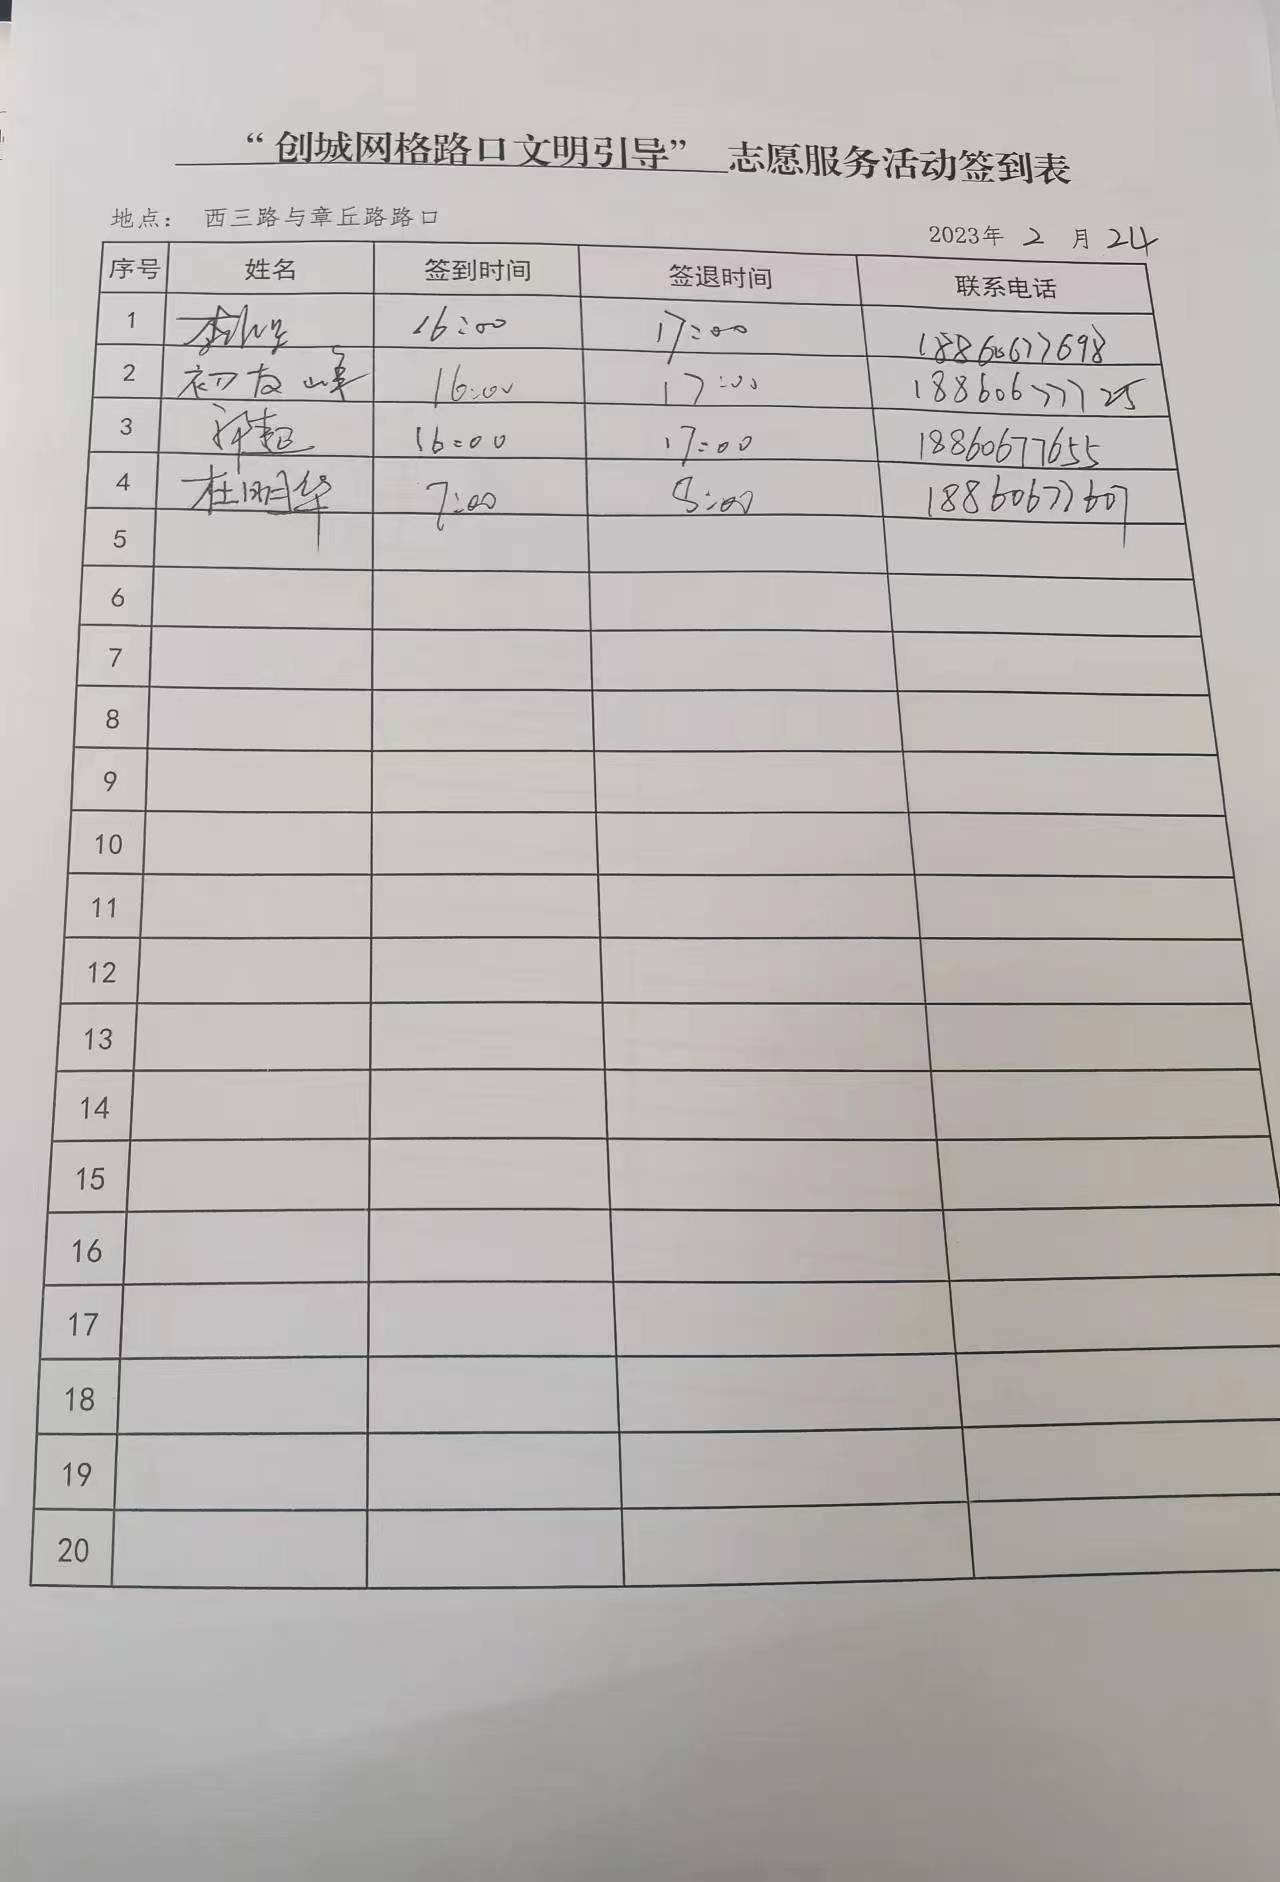 “创城网格路口文明引导” 志愿服务活动签到表
地点： 西三路与章丘路路口
2023年 2 月 24
序号 姓名 签到时间 签退时间 联系电话
1 16:00 17:00 18860677698
2 初友峰 16:00 17:00 18860677725
3 超 16:00 17:00 18860677655
4 杜明华 7:00 8:00 18860677607
5
6
7
8
9
10
11
12
13
14
15
16
17
18
19
20